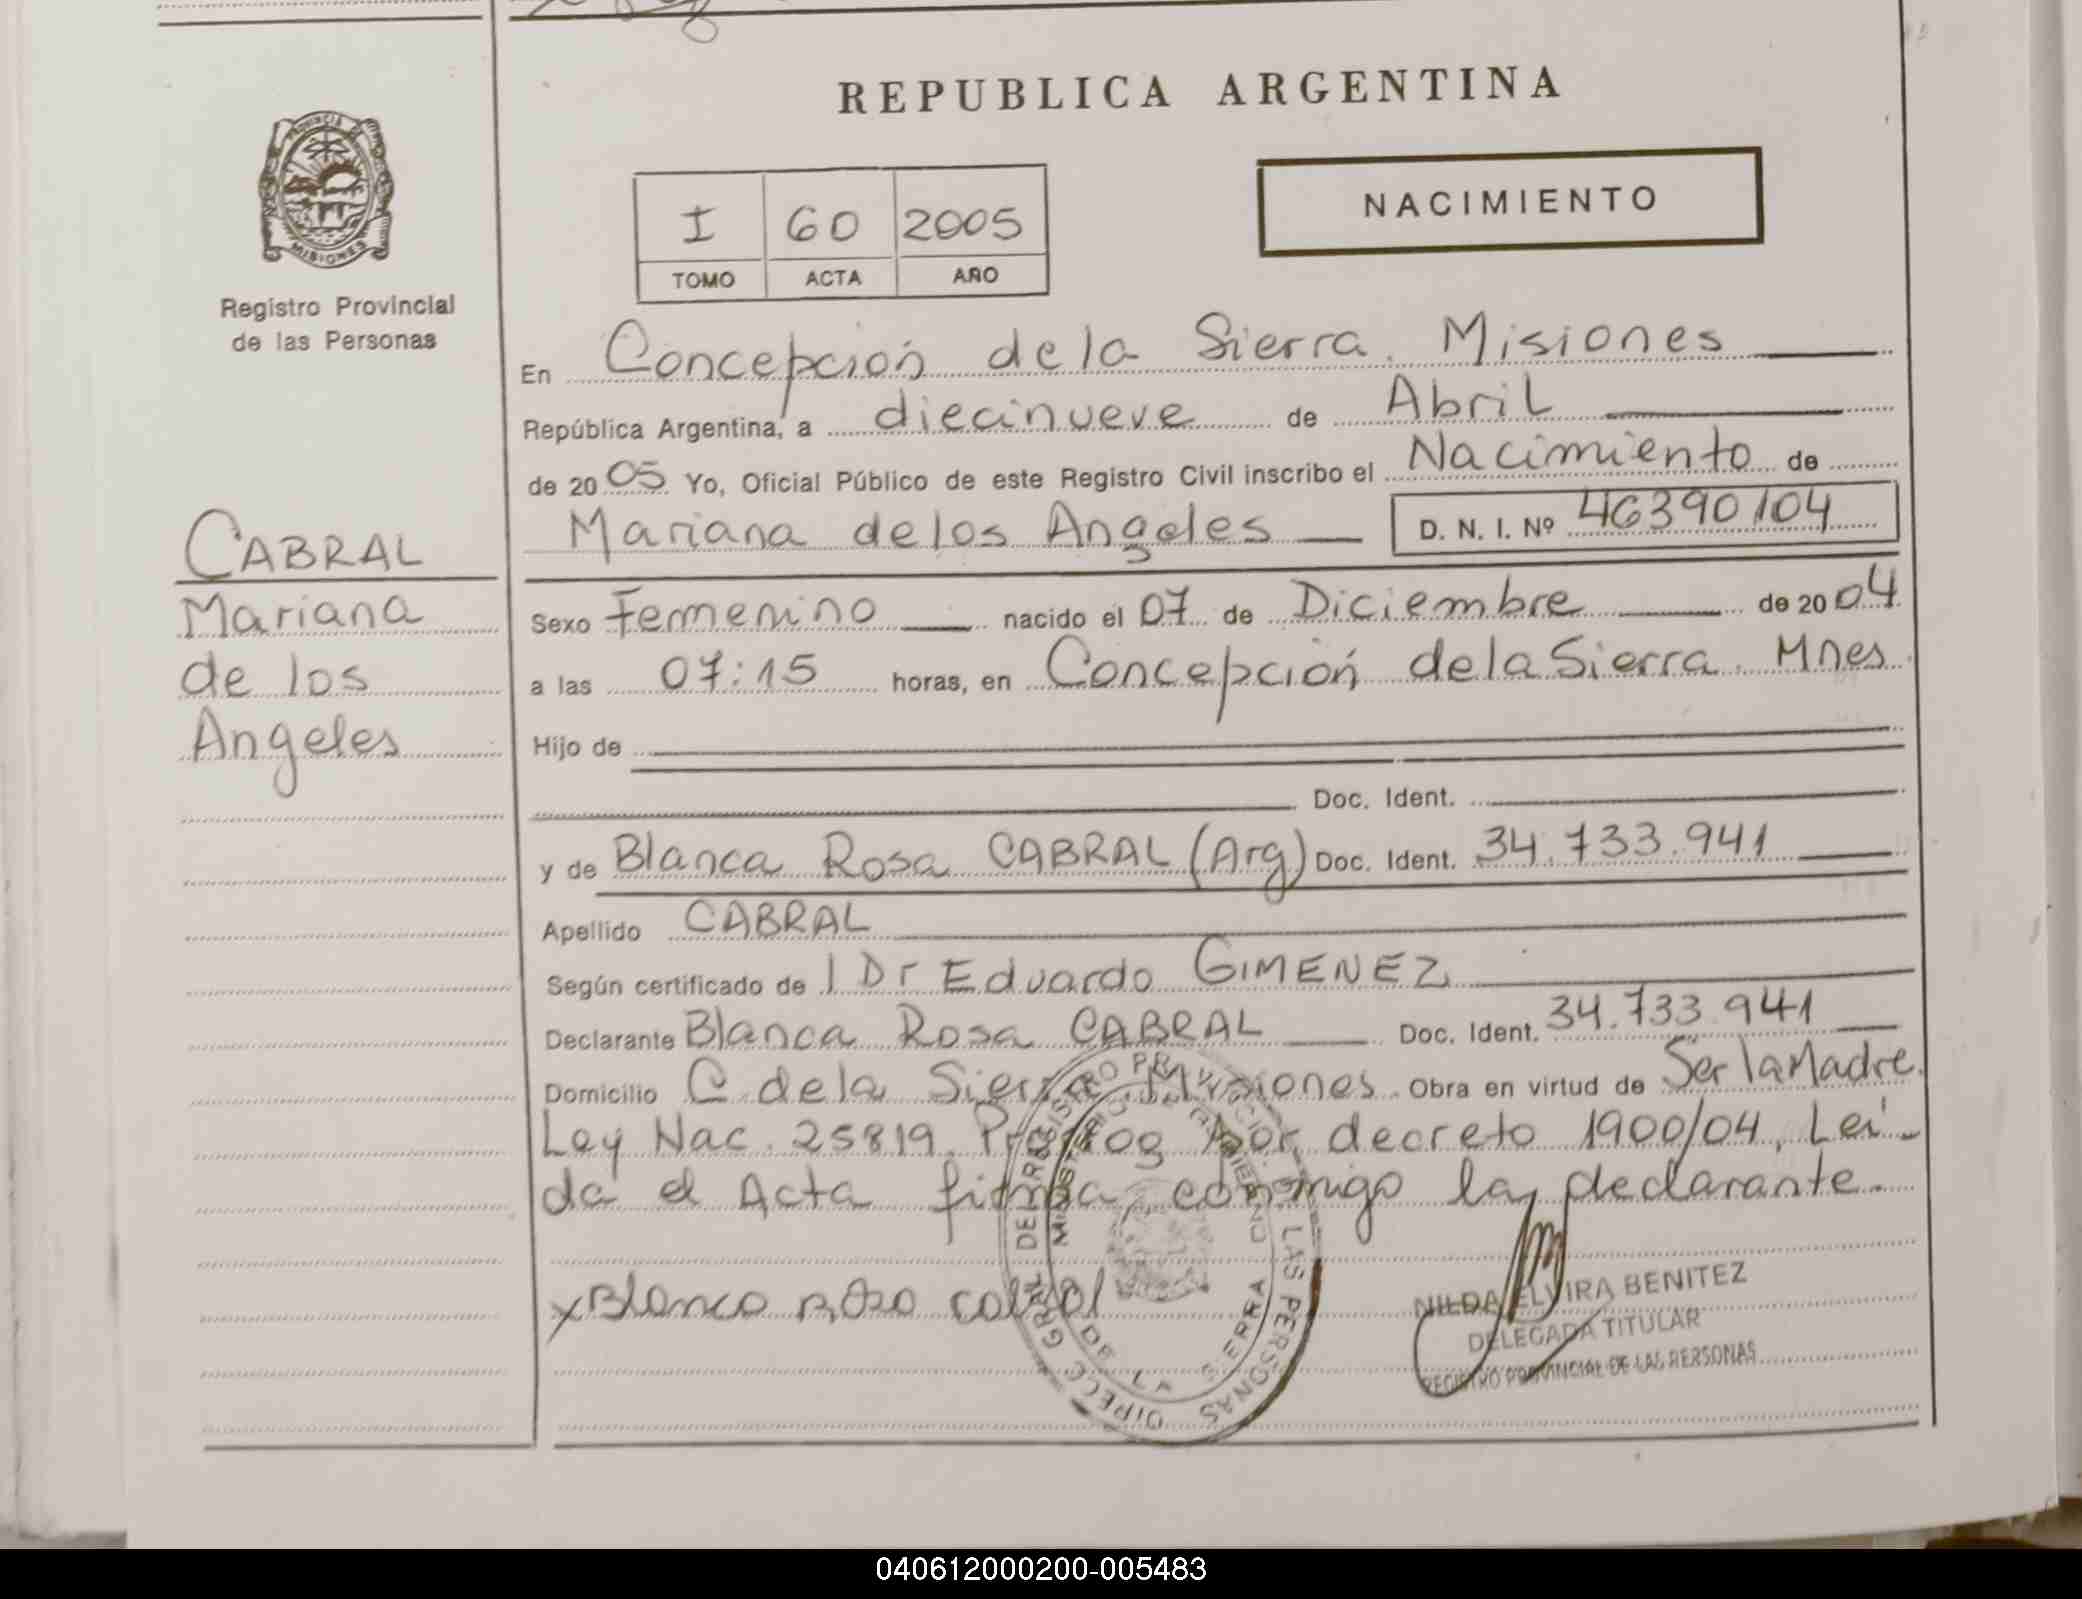 REPUBLICA ARGENTINA
PROVINCIA DE
MISIONES
Registro Provincial
de las Personas
I 60 2005
TOMO ACTA AÑO
NACIMIENTO
En Concepción de la Sierra. Misiones
República Argentina, a diecinueve de Abril
de 2005 Yo, Oficial Público de este Registro Civil inscribo el Nacimiento de
Mariana de los Angeles D. N. I. Nº 46390104
CABRAL
Mariana
de los
Angeles
Sexo Femenino nacido el 07 de Diciembre de 2004
a las 07:15 horas, en Concepción de la Sierra. Mnes.
Hijo de
Doc. Ident.
y de Blanca Rosa CABRAL (Arg) Doc. Ident. 34.733.941
Apellido CABRAL
Según certificado de l Dr Eduardo GIMENEZ
Declarante Blanca Rosa CABRAL Doc. Ident. 34.733.941
Domicilio C. de la Sierra Misiones. Obra en virtud de Ser la Madre.
Ley Nac. 25819. Prorrog por decreto 1900/04. Lei-
da el Acta firma conmigo la declarante.
x Blanca Rosa cabral
NILDA ELVIRA BENITEZ
DELEGADA TITULAR
REGISTRO PROVINCIAL DE LAS PERSONAS
DIRECC. GRAL. DEL REGISTRO PROVINCIAL DE LAS PERSONAS
MINISTERIO DE GOBIERNO
DE LA SIERRA
040612000200-005483